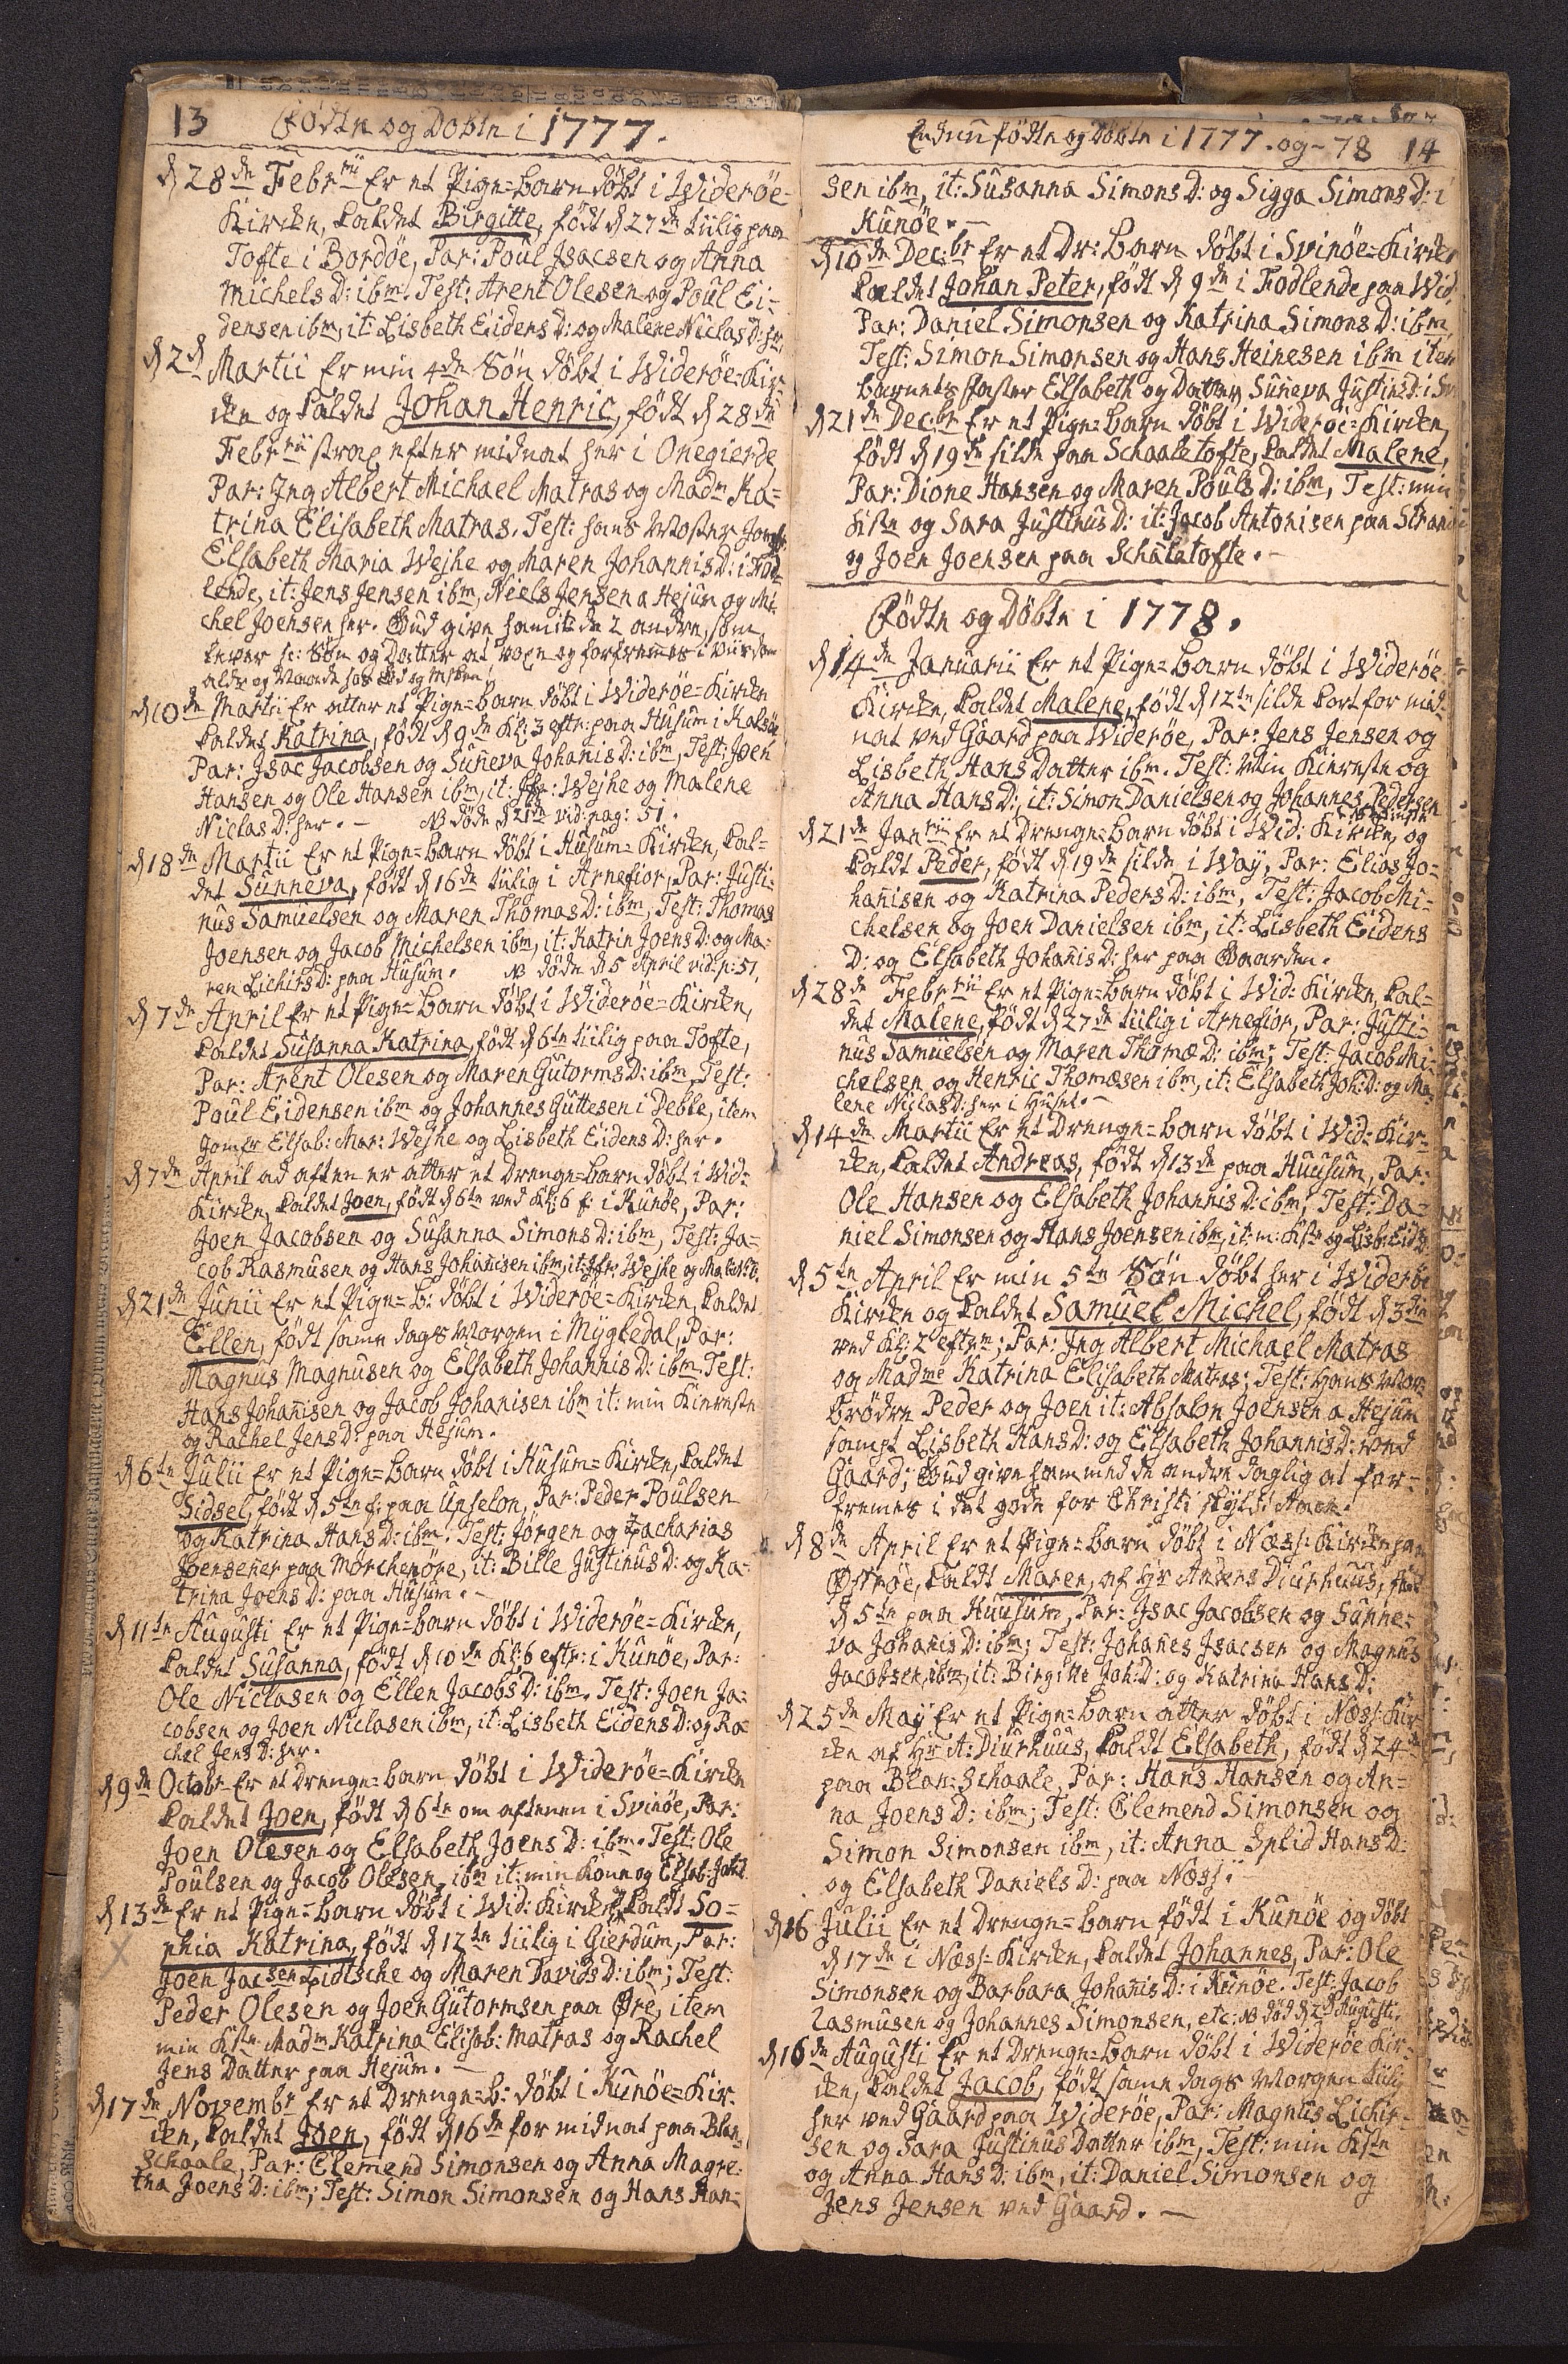 13 Födte og Döbte i 1777.
d 28de Febrrii Er et Pige=barn döbt i Wideröe=
Kirken, kaldet Birgitte, födt d 27de tiilig paa
Tofte i Bordöe, Par: Poul Jsacsen og Anna
Michels D: ibm. Test: Arent Olesen og Poul Ei-
densen ibm, it: Lisbeth Eidens D: og Malene Niclas D: her
d 2d Martii Er min 4de Sön döbt i Wideröe=Kir-
ken og kaldet Johan Henric, födt d 28de
Febrrii strax efter midnat her i Onegierde
Par: Jng Albert Michael Matras og Madm Ka=
trina Elisabeth Matras. Test: hans Moster Jomfr:
Elsabeth Maria Wejhe og Maren Johannis D: i Fod-
lende, it: Jens Jensen ibm, Niels Jensen a Hejum og Mi-
chel Joensen her. Gud give ham it: de 2 andre, som
lever sc: Sön og Datter at voxe og forfremes i viisdom
alder og Naade hos Gud og Mesken.
d 10de Martii Er atter et Pige=barn döbt i Wideröe=Kirken
kaldet Katrina, födt d 9de Kl: 3 eftr: paa Husum i Kalsöe
Par: Jsac Jacobsen og Suneva Johanis D: ibm, Test: Joen
Hansen og Ole Hansen ibm, it: Jfr: Wejhe og Malene
Niclas D: her. — NB döde d 21de vid: pag: 51.
d 18de Martii Er et Pige=barn döbt i Husum=Kirken, kal=
det Sunneva, födt d 16de tiilig i Arnefior, Par: Justi-
nus Samuelsen og Maren Thomas D: ibm, Test: Thomas
Joensen og Jacob Michelsen ibm, it: Katrin Joens D: og Ma=
ren Lichirs D: paa Husum. NB döde d 5 April vid: p: 51.
d 7de April Er et Pige=barn döbt i Wideröe=Kirken,
kaldet Susanna Katrina, födt d 6te tiilig paa Tofte,
Par: Arent Olesen og Maren Gutorms D: ibm, Test:
Poul Eidensen ibm og Johannes Guttesen i Deble, item
Jomfr Elsab: Mar: Wejhe og Lisbeth Eidens D: her.
d 7de April ad aften er atter et Drenge=barn döbt i Wid=
Kirken, kaldet Joen, födt d 6te ved Kl: 6 f: i Kunöe, Par:
Joen Jacobsen og Susanna Simons D: ibm, Test: Ja=
cob Rasmusen og Hans Johanisen ibm, it: Jfr: Wejhe og Mal: N: D:
d 21de Junii Er et Pige=b: döbt i Wideröe=Kirken, kaldet
Ellen, födt same dags Morgen i Mygledal, Par:
Magnus Magnusen og Elsabeth Johannis D: ibm. Test:
Hans Johanisen og Jacob Johanisen ibm it: min Kiereste
og Rachel Jens D: paa Hejum.
d 6te Julii Er et Pige=barn döbt i Husum=Kirken, kaldet
Sidsel, födt d 5te f: paa Unselon, Par: Peder Poulsen
og Katrina Hans D: ibm. Test: Jørgen og Zacharias
Joensener paa Morchenöre, it: Bille Justinus D: og Ka-
trina Joens D: paa Husum. —
d 11te Augusti Er et Pige=barn döbt i Wideröe=Kirken,
kaldet Susanna, födt d 10de Kl: 6 eftr: i Kunöe, Par:
Ole Niclasen og Ellen Jacobs D: ibm. Test: Joen Ja=
cobsen og Joen Niclasen ibm, it: Lisbeth Eidens D: og Ra-
chel Jens D: her.
d 9de Octobr Er et Drenge=barn döbt i Wideröe=Kirken
kaldet Joen, födt d 6te om aftenen i Svinöe, Par:
Joen Olesen og Elsabeth Joens D: ibm. Test: Ole
Poulsen og Jacob Olesen ibm it: min Kone og Elsab: Joh: D
d 13de Er et Pige=barn döbt i Wid: Kirken kaldt So=
phia Katrina, födt d 12te tiilig i Gierdum, Par:
Joen Jacsen Lidtsche og Maren Davids D: ibm; Test:
Peder Olesen og Joen Gutormsen paa Øre, item
min Kste Madm Katrina Elisab: Matras og Rachel
Jens Datter paa Hejum. —
d 17de Novembr Er et Drenge=b: döbt i Kunöe=Kir-
ken, kaldet Joen, födt d 16de for midnat paa Blan-
Schaale, Par: Clemend Simonsen og Anna Magre-
tha Joens D: ibm; Test: Simon Simonsen og Hans Han-
Endnu födte og Döbte i 1777. og - 78 14
sen ibm, it: Susanna Simons D: og Sigga Simons D: i
Kunöe. —
d 10de Dec:br Er et Dr: barn döbt i Svinöe=Kirken
kaldet Johan Peter, födt d 9de i Fodlende paa Wid.
Par: Daniel Simonsen og Katrina Simons D: ibm
Test: Simon Simonsen og Hans Heinesen ibm item
barnets faster Elsabeth og Datter Suneva Justines D: i Sv
d 21de Dec:br Er et Pige=barn döbt i Wideröe=Kirken,
födt d 19de silde paa Schaaletofte, kaldet Malene,
Par: Dione Hansen og Maren Pouls D: ibm, Test: min
Kste og Sara Justinus D: it: Jacob Antonisen paa Strand
og Joen Joensen paa Schaletofte. —
Födte og Döbte i 1778.
d 14de Januarii Er et Pige=barn döbt i Wideröe
Kirken, kaldet Malene, födt d 12te silde kort for mid-
nat ved Gaard paa Wideröe, Par: Jens Jensen og
Lisbeth Hans Datter ibm. Test: Min Kiereste og
Anna Hans D:, it: Simon Danielsen og Johannes Pedersen
d 21de Janrii Er et Drenge=barn döbt i Wid: Kirken, og
kaldt Peder, födt d 19de silde i Way, Par: Elias Jo-
hanisen og Katrina Peders D: ibm, Test: Jacob Mi-
chelsen og Joen Danielsen ibm, it: Lisbeth Eidens
D: og Elsabeth Johanis D: her paa Gaarden.
d 28de Febrrii Er et Pige=barn döbt i Wid: Kirken, kal=
det Malene, födt d 27de tiilig i Arnefior, Par: Justi-
nus Samuelsen og Maren Thomæ D: ibm; Test: Jacob Mi-
chelsen og Henric Thomæsen ibm, it: Elsabeth Joh: D: og Ma-
lene Niclas D: her i Huset. —
d 14de Martii Er et Drenge=barn döbt i Wid=Kir=
ken, kaldet Andreas, födt d 13de paa Huusum, Par:
Ole Hansen og Elsabeth Johannis D: ibm, Test: Da=
niel Simonsen og Hans Joensen ibm, it: m: Kste og Lisb: Eid: D:
d 5te April Er min 5te Sön döbt her i Wideröe
Kirken og kaldet Samuel Michel, födt d 3die
ved Kl: 2 efterm; Par: Jng Albert Michael Matras
og Madme Katrina Elisabeth Matras; Test: hans Mor-
brödre Peder og Joen it: Absalon Joensen a Hejum
sampt Lisbeth Hans D: og Elsabeth Johannis D: ved
Gaard; Gud give ham med de andre daglig at for-
fremes i det gode for Christi skyld! Amen.
d 8de April Er et Pige=barn döbt i Næss=Kirken paa
Øströe, kaldt Maren, af Hr Anders Diurhuus, födt
d 5te paa Huusum, Par: Jsac Jacobsen og Sunne-
va Johanis D: ibm; Test: Johanes Jsacsen og Magnus
Jacobsen ibm, it: Birgitte Joh: D: og Katrina Hans D:
d 25de Maÿ Er et Pige=barn atter döbt i Næss: Kir-
ken af Hr A: Diurhuus, kaldt Elsabeth, födt d 24de
paa Blan=Schaale, Par: Hans Hansen og An=
na Joens D: ibm; Test: Clemend Simonsen og
Simon Simonsen ibm, it: Anna Splid Hans D:
og Elsabeth Daniels D: paa Næss.
d 16 Julii Er et Drenge=barn födt i Kunöe og döbt
d 17de i Næss-Kirken, kaldet Johannes, Par: Ole
Simonsen og Barbara Johanis D: i Kunöe. Test: Jacob
Rasmusen og Johannes Simonsen, etc: NB död d 2d Augusti.
d 16de Augusti Er et Drenge=barn döbt i Wideröe Kir-
ken, kaldet Jacob, födt same dags Morgen tiilig
her ved Gaard paa Wideröe, Par: Magnus Lichir-
sen og Sara Justinus Datter ibm, Test: min Kste
og Anna Hans D: ibm, it: Daniel Simonsen og
Jens Jensen ved Gaard. —